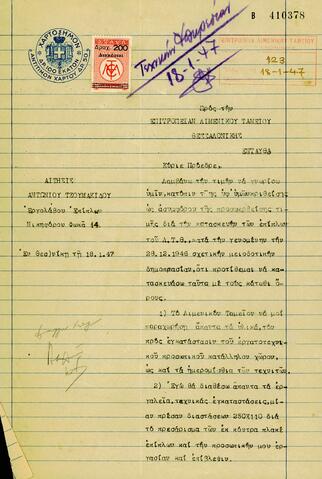 B 410378
ΧΑΡΤΟΣΗΜΟΝ
ΔΡ. 100 ΕΚΑΤΟΝ
ΑΝΤΙΤΙΜΟΝ ΧΑΡΤΟΥ ΔΡ. 50
Δραχ. 200
Τεχνικὴν Ὑπηρεσίαν
18.1.47
ΕΠΙΤΡΟΠΕΙΑ ΛΙΜΕΝΙΚΟΥ ΤΑΜΕΙΟΥ
123
18-1-47
Πρὸς τὴν
ΕΠΙΤΡΟΠΕΙΑΝ ΛΙΜΕΝΙΚΟΥ ΤΑΜΕΙΟΥ
ΘΕΣΣΑΛΟΝΙΚΗΣ
ΕΝΤΑΥΘΑ
Κύριε Πρόεδρε,
ΑΙΤΗΣΙΣ
ΑΝΤΩΝΙΟΥ ΤΣΟΥΜΑΚΙΔΟΥ
Ἐργολάβου Ἐπίπλων
Νικηφόρου Φωκᾶ 14.
Ἐν Θεσ)νίκῃ τῇ 18.1.47
Λαμβάνω τὴν τιμὴν νὰ γνωρίσω
ὑμῖν, κατόπιν τῆς ὑφ' ὑμῶν κριθείσης
ὡς ἀσυμφόρου τῆς προσφερθείσης τι-
μῆς διὰ τὴν κατασκευὴν τῶν ἐπίπλων
τοῦ Λ.Τ.Θ. κατὰ τὴν γενομένην τὴν
28.12.1946 σχετικὴν μειοδοτικὴν
δημοπρασίαν, ὅτι προτίθεμαι νὰ κα-
τασκευάσω ταῦτα μὲ τοὺς κάτωθι ὅ-
ρους.
1) Τὸ Λιμενικὸν Ταμεῖον νὰ μοὶ
παραχωρήσῃ ἅπαντα τὰ ὑλικά, τὸν
πρὸς ἐγκατάστασιν τοῦ ἐργατοτεχνι-
κοῦ προσωπικοῦ κατάλληλον χῶρον,
ὡς καὶ τὰ ἡμερομίσθια τῶν τεχνιτῶν.
2) Ἐγὼ θὰ διαθέσω ἅπαντα τὰ ἐρ-
γαλεῖα, τεχνικὰς ἐγκαταστάσεις, μί-
αν πρέσαν διαστάσεων 250Χ110 διὰ
τὸ πρεσάρισμα τῶν ἐκ κόντρα πλακὲ
ἐπίπλων καὶ τὴν προσωπικήν μου ἐρ-
γασίαν καὶ ἐπίβλεψιν.